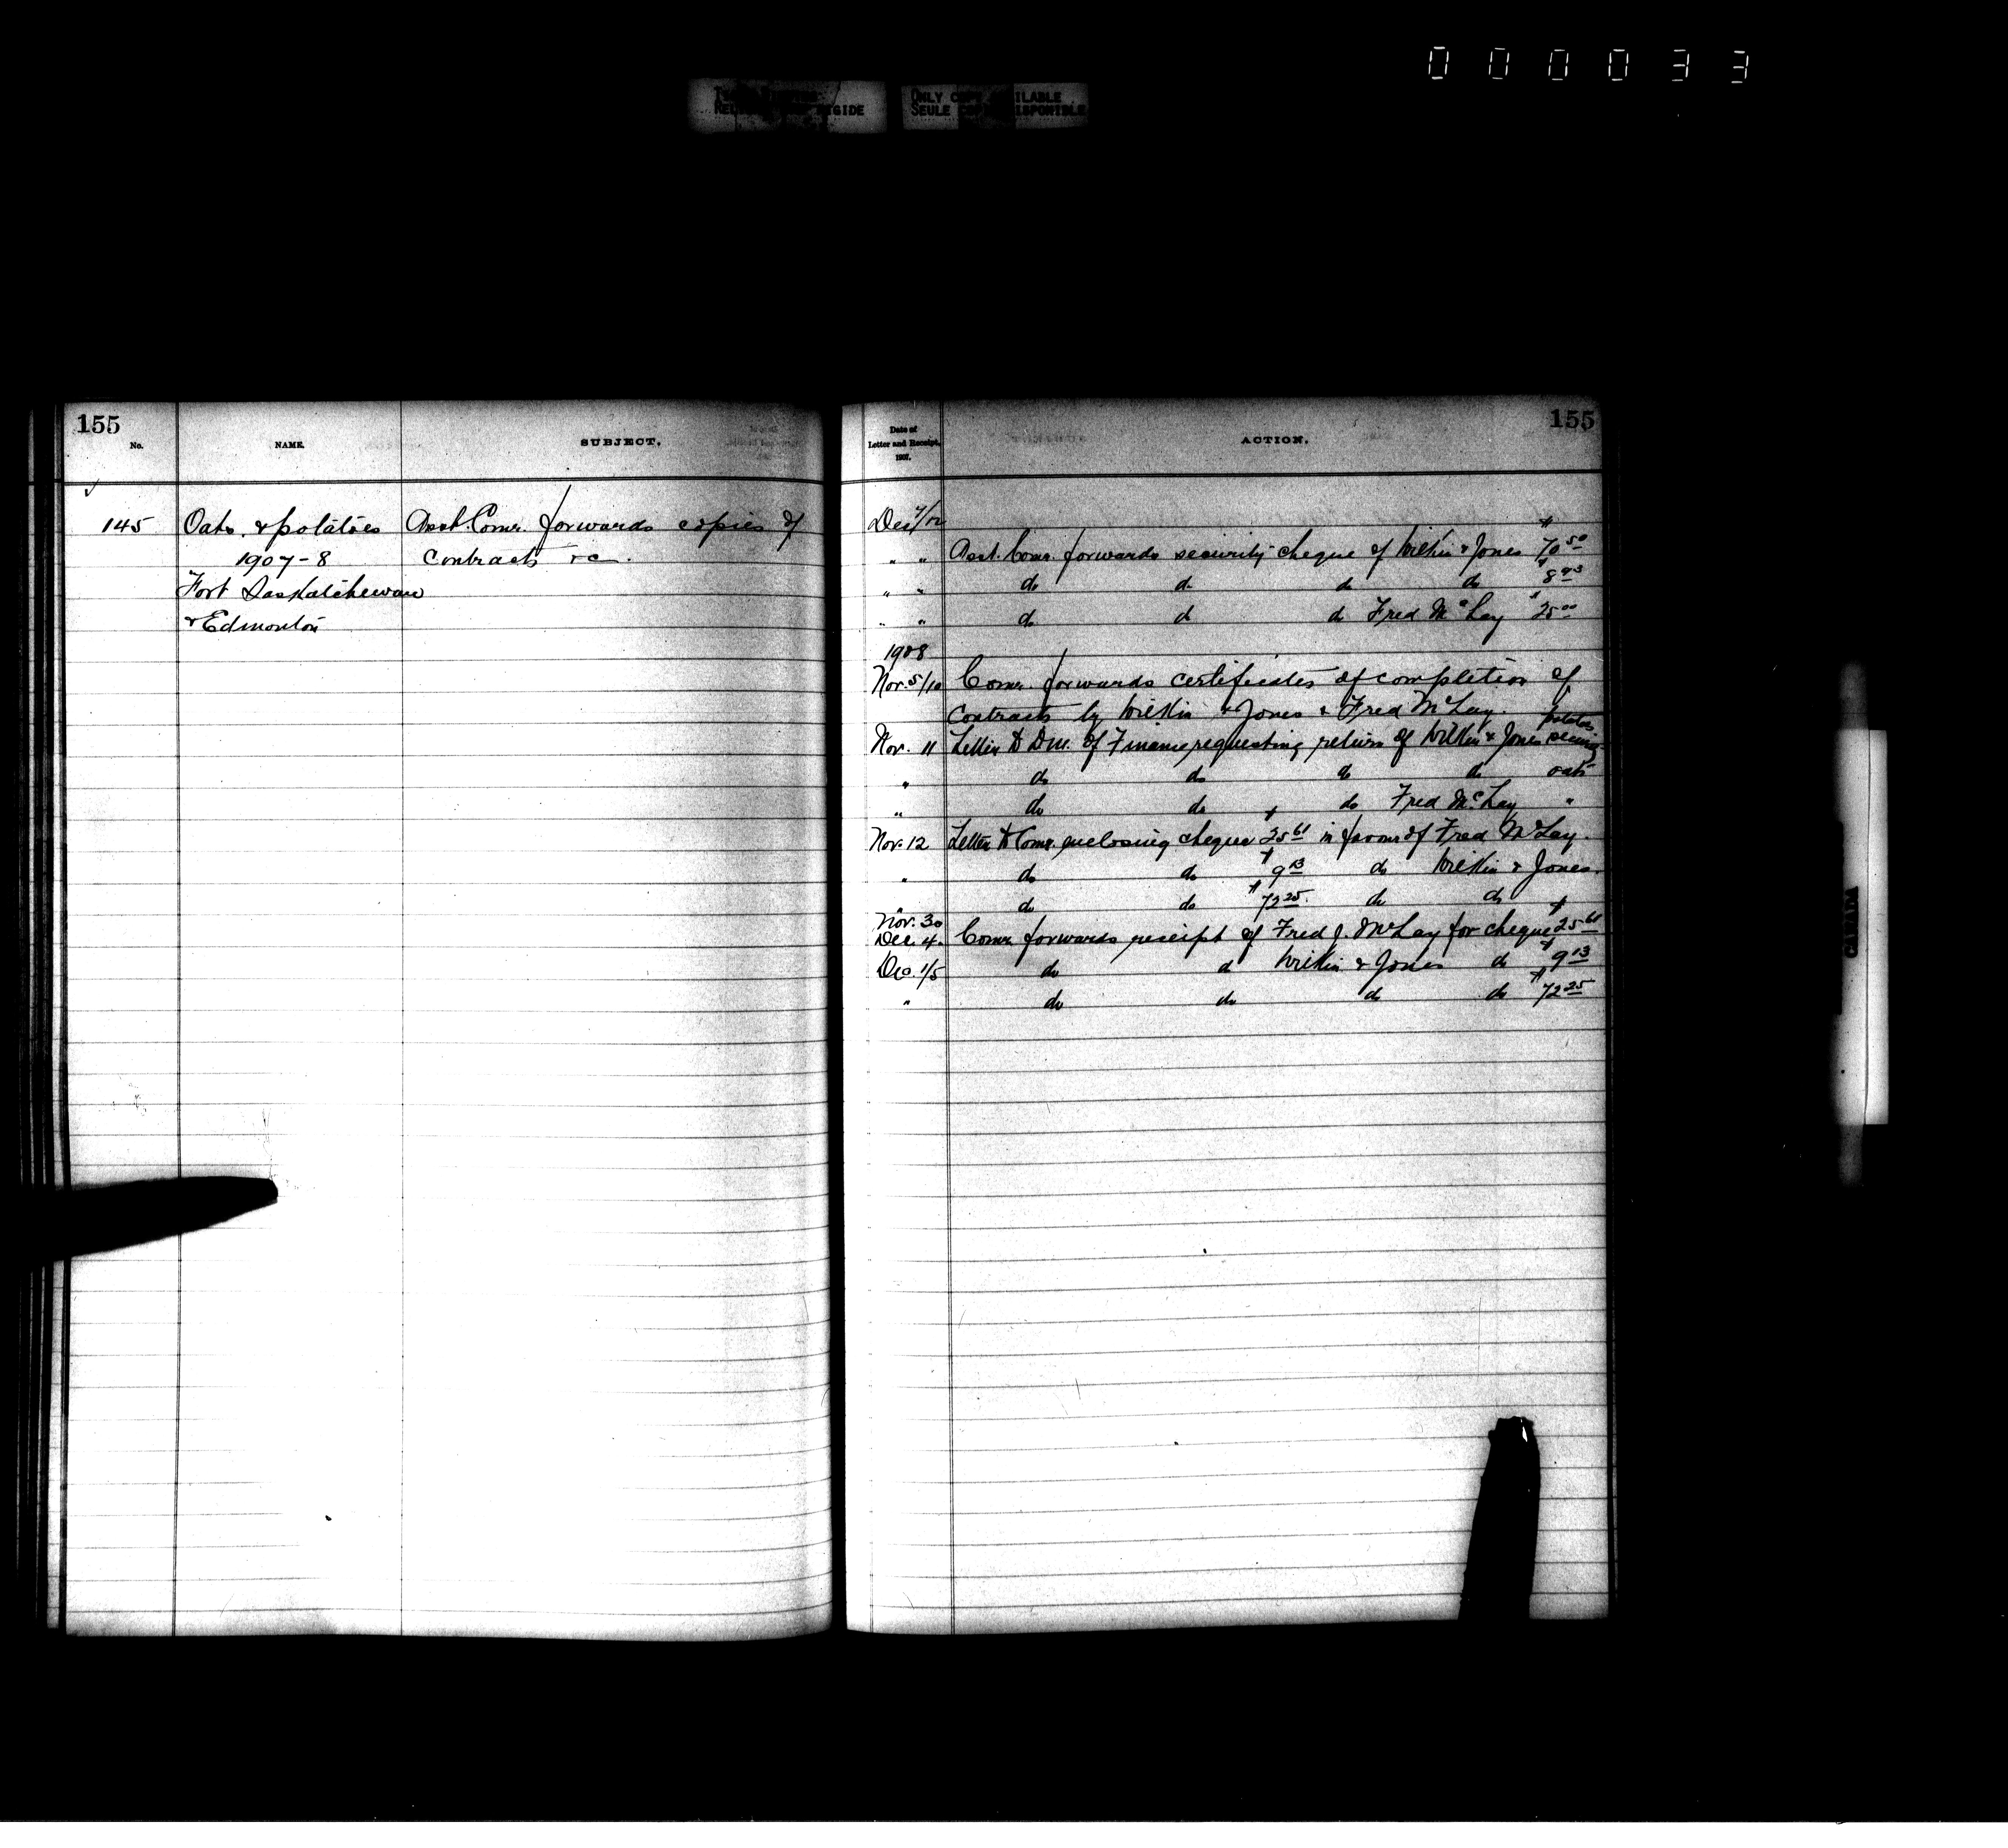 000033
ONLY COPY AVAILABLE
SEULE COPIE DISPONIBLE
155
No.
NAME.
SUBJECT.
145 Oats & potatoes Asst. Comr. forwards copies of
1907-8 contracts &c.
Fort Saskatchewan
& Edmonton
155
Date of
Letter and Receipt,
1907.
ACTION.
Dec 7/12
" " Asst. Comr. forwards security cheque of Wilkin & Jones $70.50
" " do do do do $8.93
" " do do do Fred McLay $25.00
1908
Nov. 5/10 Comr. forwards certificates of completion of
contracts by Wilkin & Jones & Fred McLay.
Nov. 11 Letter to D.M. of Finance requesting return of Wilkin & Jones potatoes security
" do do do do oats
" do do do Fred McLay "
Nov. 12 Letter to Comr. enclosing cheque $25.61 in favour of Fred McLay.
" do do $9.13 do Wilkin & Jones.
" do do $72.25. do do
Nov. 30
Dec. 4. Comr. forwards receipt of Fred J. McLay for cheque $25.61
Dec. 1/5 do do Wilkin & Jones do $9.13
" do do do do $72.25